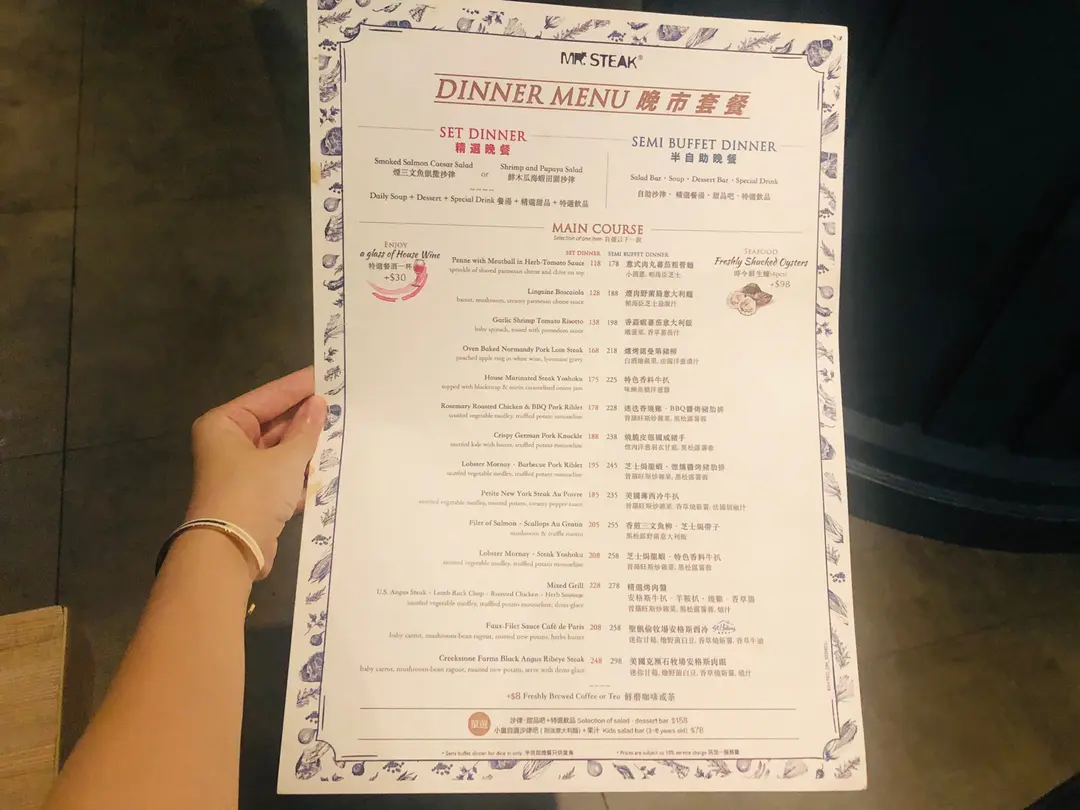 MR. STEAK®
DINNER MENU 晚市套餐
SET DINNER
精選晚餐
Smoked Salmon Caesar Salad
煙三文魚凱撒沙律
or
Shrimp and Papaya Salad
鮮木瓜海蝦田園沙律
Daily Soup + Dessert + Special Drink 餐湯 + 精選甜品 + 特選飲品
SEMI BUFFET DINNER
半自助晚餐
Salad Bar · Soup · Dessert Bar · Special Drink
自助沙律 · 精選餐湯 · 甜品吧 · 特選飲品
MAIN COURSE
Selection of one item 自選以下一款
ENJOY
a glass of House Wine
特選餐酒一杯
+$30
SEAFOOD
Freshly Shucked Oysters
時令鮮生蠔(4pcs)
+$98
SET DINNER SEMI BUFFET DINNER
Penne with Meatball in Herb-Tomato Sauce 118 178 意式肉丸蕃茄粗管麵
sprinkle of shaved parmesan cheese and chive on top
Linguine Boscaiola 128 188 煙肉野菌扁意大利麵
bacon, mushroom, creamy parmesan cheese sauce
Garlic Shrimp Tomato Risotto 138 198 香蒜蝦蕃茄意大利飯
baby spinach, tossed with pomodoro sauce
Oven Baked Normandy Pork Loin Steak 168 218 爐烤諾曼第豬柳
poached apple ring in white wine, lyonnaise gravy
House Marinated Steak Yoshoku 175 225 特色香料牛扒
Rosemary Roasted Chicken & BBQ Pork Riblet 178 228 迷迭香燒雞 · BBQ醬烤豬肋排
sautéed vegetable medley, truffled potato mousseline
Crispy German Pork Knuckle 188 238 燒脆皮德國咸豬手
sautéed kale with bacon, truffled potato mousseline
Lobster Mornay · Barbecue Pork Riblet 195 245 芝士焗龍蝦 · 德燻醬烤豬肋排
sautéed vegetable medley, truffled potato mousseline
Petite New York Steak Au Poivre 185 235 美國薄西冷牛扒
sautéed vegetable medley, roasted potato, creamy pepper sauce
Filet of Salmon · Scallops Au Gratin 205 255 香煎三文魚柳 · 芝士焗帶子
mushroom & truffle risotto
黑松露野菌意大利飯
Lobster Mornay · Steak Yoshoku 208 258 芝士焗龍蝦 · 特色香料牛扒
sautéed vegetable medley, truffled potato mousseline
Mixed Grill 228 278 精選烤肉盤
U.S. Angus Steak · Lamb Rack Chop · Roasted Chicken · Herb Sausage
安格斯牛扒 · 羊鞍扒 · 燒雞 · 香草腸
sautéed vegetable medley, truffled potato mousseline, demi-glace
Faux-Filet Sauce Café de Paris 208 258 聖凱倫牧場安格斯西冷
baby carrot, mushroom-bean ragout, roasted new potato, herbs butter
迷你甘筍, 燴野菌白豆, 香草燒新薯, 香草牛油
Creekstone Farms Black Angus Ribeye Steak 248 298 美國克里石牧場安格斯肉眼
baby carrot, mushroom-bean ragout, roasted new potato, serve with demi-glace
迷你甘筍, 燴野菌白豆, 香草燒新薯, 燒汁
+$8 Freshly Brewed Coffee or Tea 鮮磨咖啡或茶
單選
沙律 · 甜品吧+特選飲品 Selection of salad · dessert bar $158
Kids salad bar (3-8 years old) $78
* Semi buffet dinner for dine in only
* Prices are subject to 10% service charge 另加一服務費